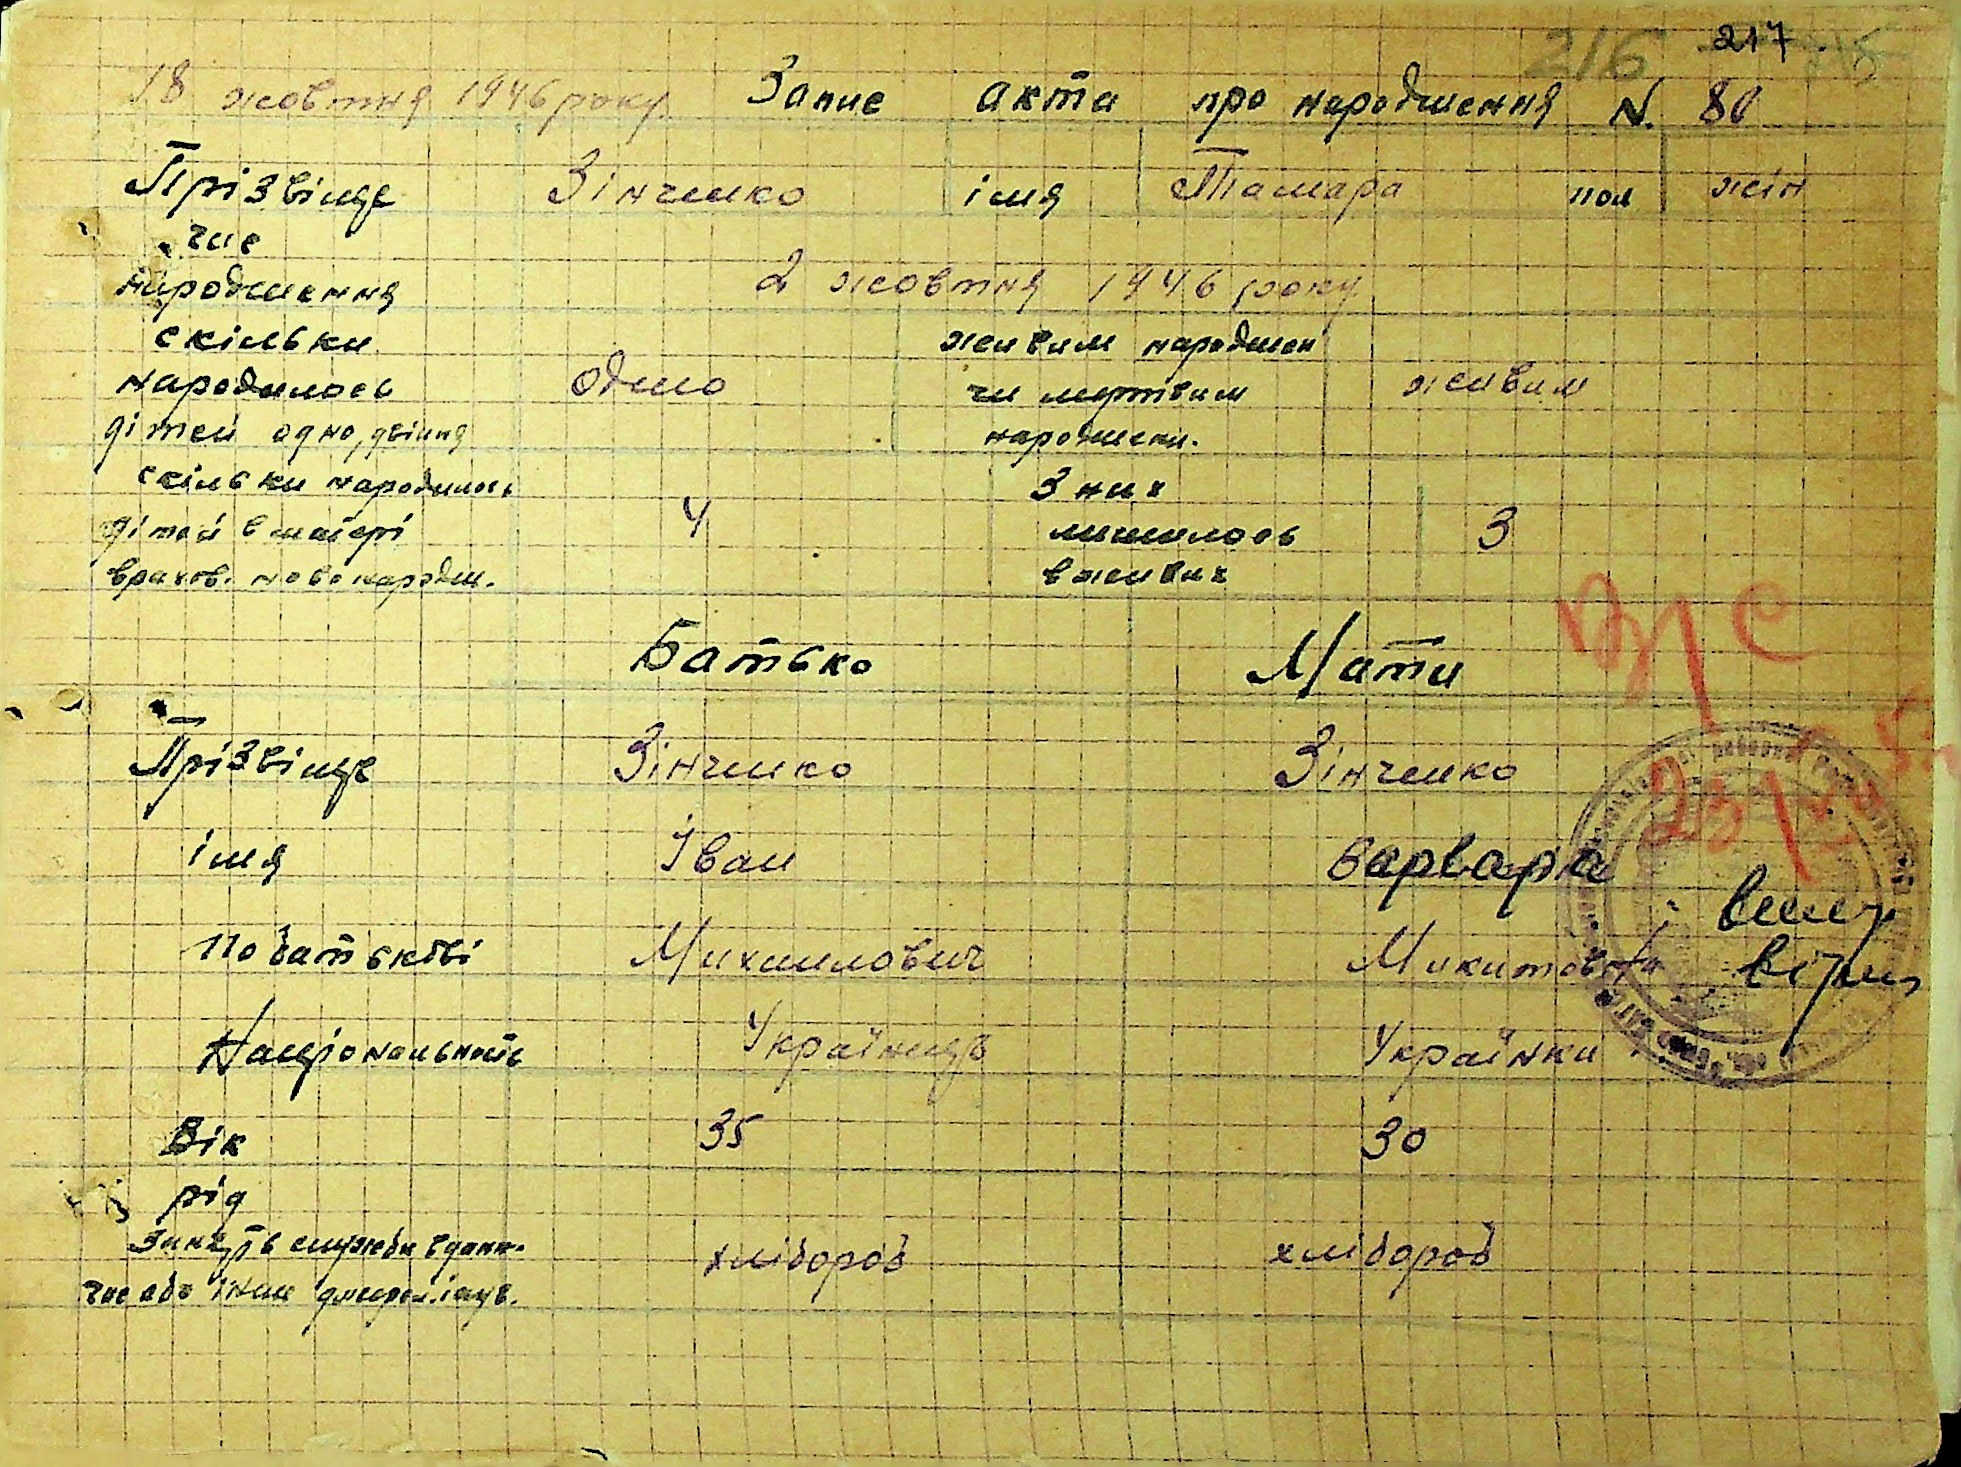 216 217
18 жовтня 1946 року. Запис акта про народження N. 80
Прізвіще Зінченко імя Тамара пол жін
час
народження 2 жовтня 1946 року
скільки живим народжен
народилось одно чи мертвим живим
дітей одно, двійня народжени.
скільки народилось З них
дітей в матері 4 лишилось 3
врахов. новонародж. в живих
Батько Мати
Прізвіще Зінченко Зінченко
імя Іван Варвара
По батькові Михайлович Микитовна
Національність Українець Українка
Вік 35 30
рід
занять служби
або інш хлібороб хлібороб